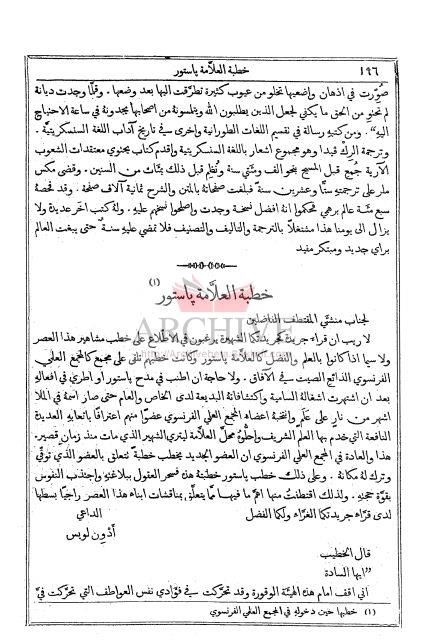 ١٩٦ خطبة العلّامة پاستور
صُوّرت في اذهان واضعيها تخلو من عيوب كثيرة تطرّقت اليها بعد وضعها. وقلّما وجدت ديانة
لم تحتوِ من الحق ما يكفي لجعل الذين يطلبون الله ويلتمسونهُ من اصحابها يجدونهُ في ساعة الاحتياج
اليهِ". ومن كتبهِ رسالة في تقسيم اللغات الطورانية واخرى في تاريخ آداب اللغة السنسكريتية.
وترجمة الرِك ڤيدا وهو مجموع اشعار باللغة السنسكريتية واقدم كتاب يحتوي معتقدات الشعوب
الآرية جُمع قبل المسيح بنحو الف ومئتي سنة ونُظم قبل ذلك بمئات من السنين. وقضى مكس
ملر على ترجمتهِ ستًّا وعشرين سنةً فبلغت صفحاتهُ بالمتن والشرح ثمانية آلاف صفحة. وقد فحصهُ
سبع مئة عالم برهمي فحكموا انهُ افضل نسخة وجدت واصلحوا نسخهم عليهِ. ولهُ كتب اخر عديدة ولا
يزال الى يومنا هذا مشتغلاً بالترجمة والتاليف والتصنيف فلا تمضي عليهِ سنةٌ حتى يبغت العالم
براي جديد ومبتكر مفيد
خطبة العلّامة پاستور (١)
ARCHIVE
لجناب منشئي المقتطف الفاضلين
لا ريب ان قراء جريدتكما الشهيرة يرغبون في الاطّلاع على خطب مشاهير هذا العصر
ولا سيما اذا كانوا بالعلم والفضل كالعلّامة پاستور وكانت خطبهم تلقى على مجمع كالمجمع العلمي
الفرنسوي الذائع الصيت في الآفاق. ولا حاجة ان اطنب في مدح پاستور او اطري في افعالهِ
بعد ان اشتهرت اشغالهُ السامية واكتشافاتهُ البديعة لدى الخاص والعام حتى صار اسمهُ في الملا
اشهر من نارٍ على علَم وانتخبهُ اعضاء المجمع العلمي الفرنسوي عضوًا منهم اعترافًا باتعابهِ العديدة
النافعة التي خدم بها العلم الشريف واحلّوهُ محلّ العلّامة ليتري الشهير الذي مات منذ زمان قصير.
هذا والعادة في المجمع العلمي الفرنسوي ان العضو الجديد يخطب خطبة تتعلق بالعضو الذي توفي
وترك لهُ مكانهُ. وعلى ذلك خطب پاستور خطبتهُ هذه فسحر العقول ببلاغتهِ واجتذب النفوس
بقوّة حجتهِ. ولذلك اقتطفتُ منها اهمّ ما فيها ممّا يتعلق بمناقشات ابناء هذا العصر راجيًا بسطها
لدى قرّاء جريدتكما الغرّاء ولكما الفضل الداعي
أدْون لويس
قال الخطيب
"ايها السادة
اني اقف امام هذه الهيئة الموقورة وقد تحرّكت في فؤادي نفس العواطف التي تحرّكت في
(١) خطبها حين دخولهِ في المجمع العلمي الفرنسوي